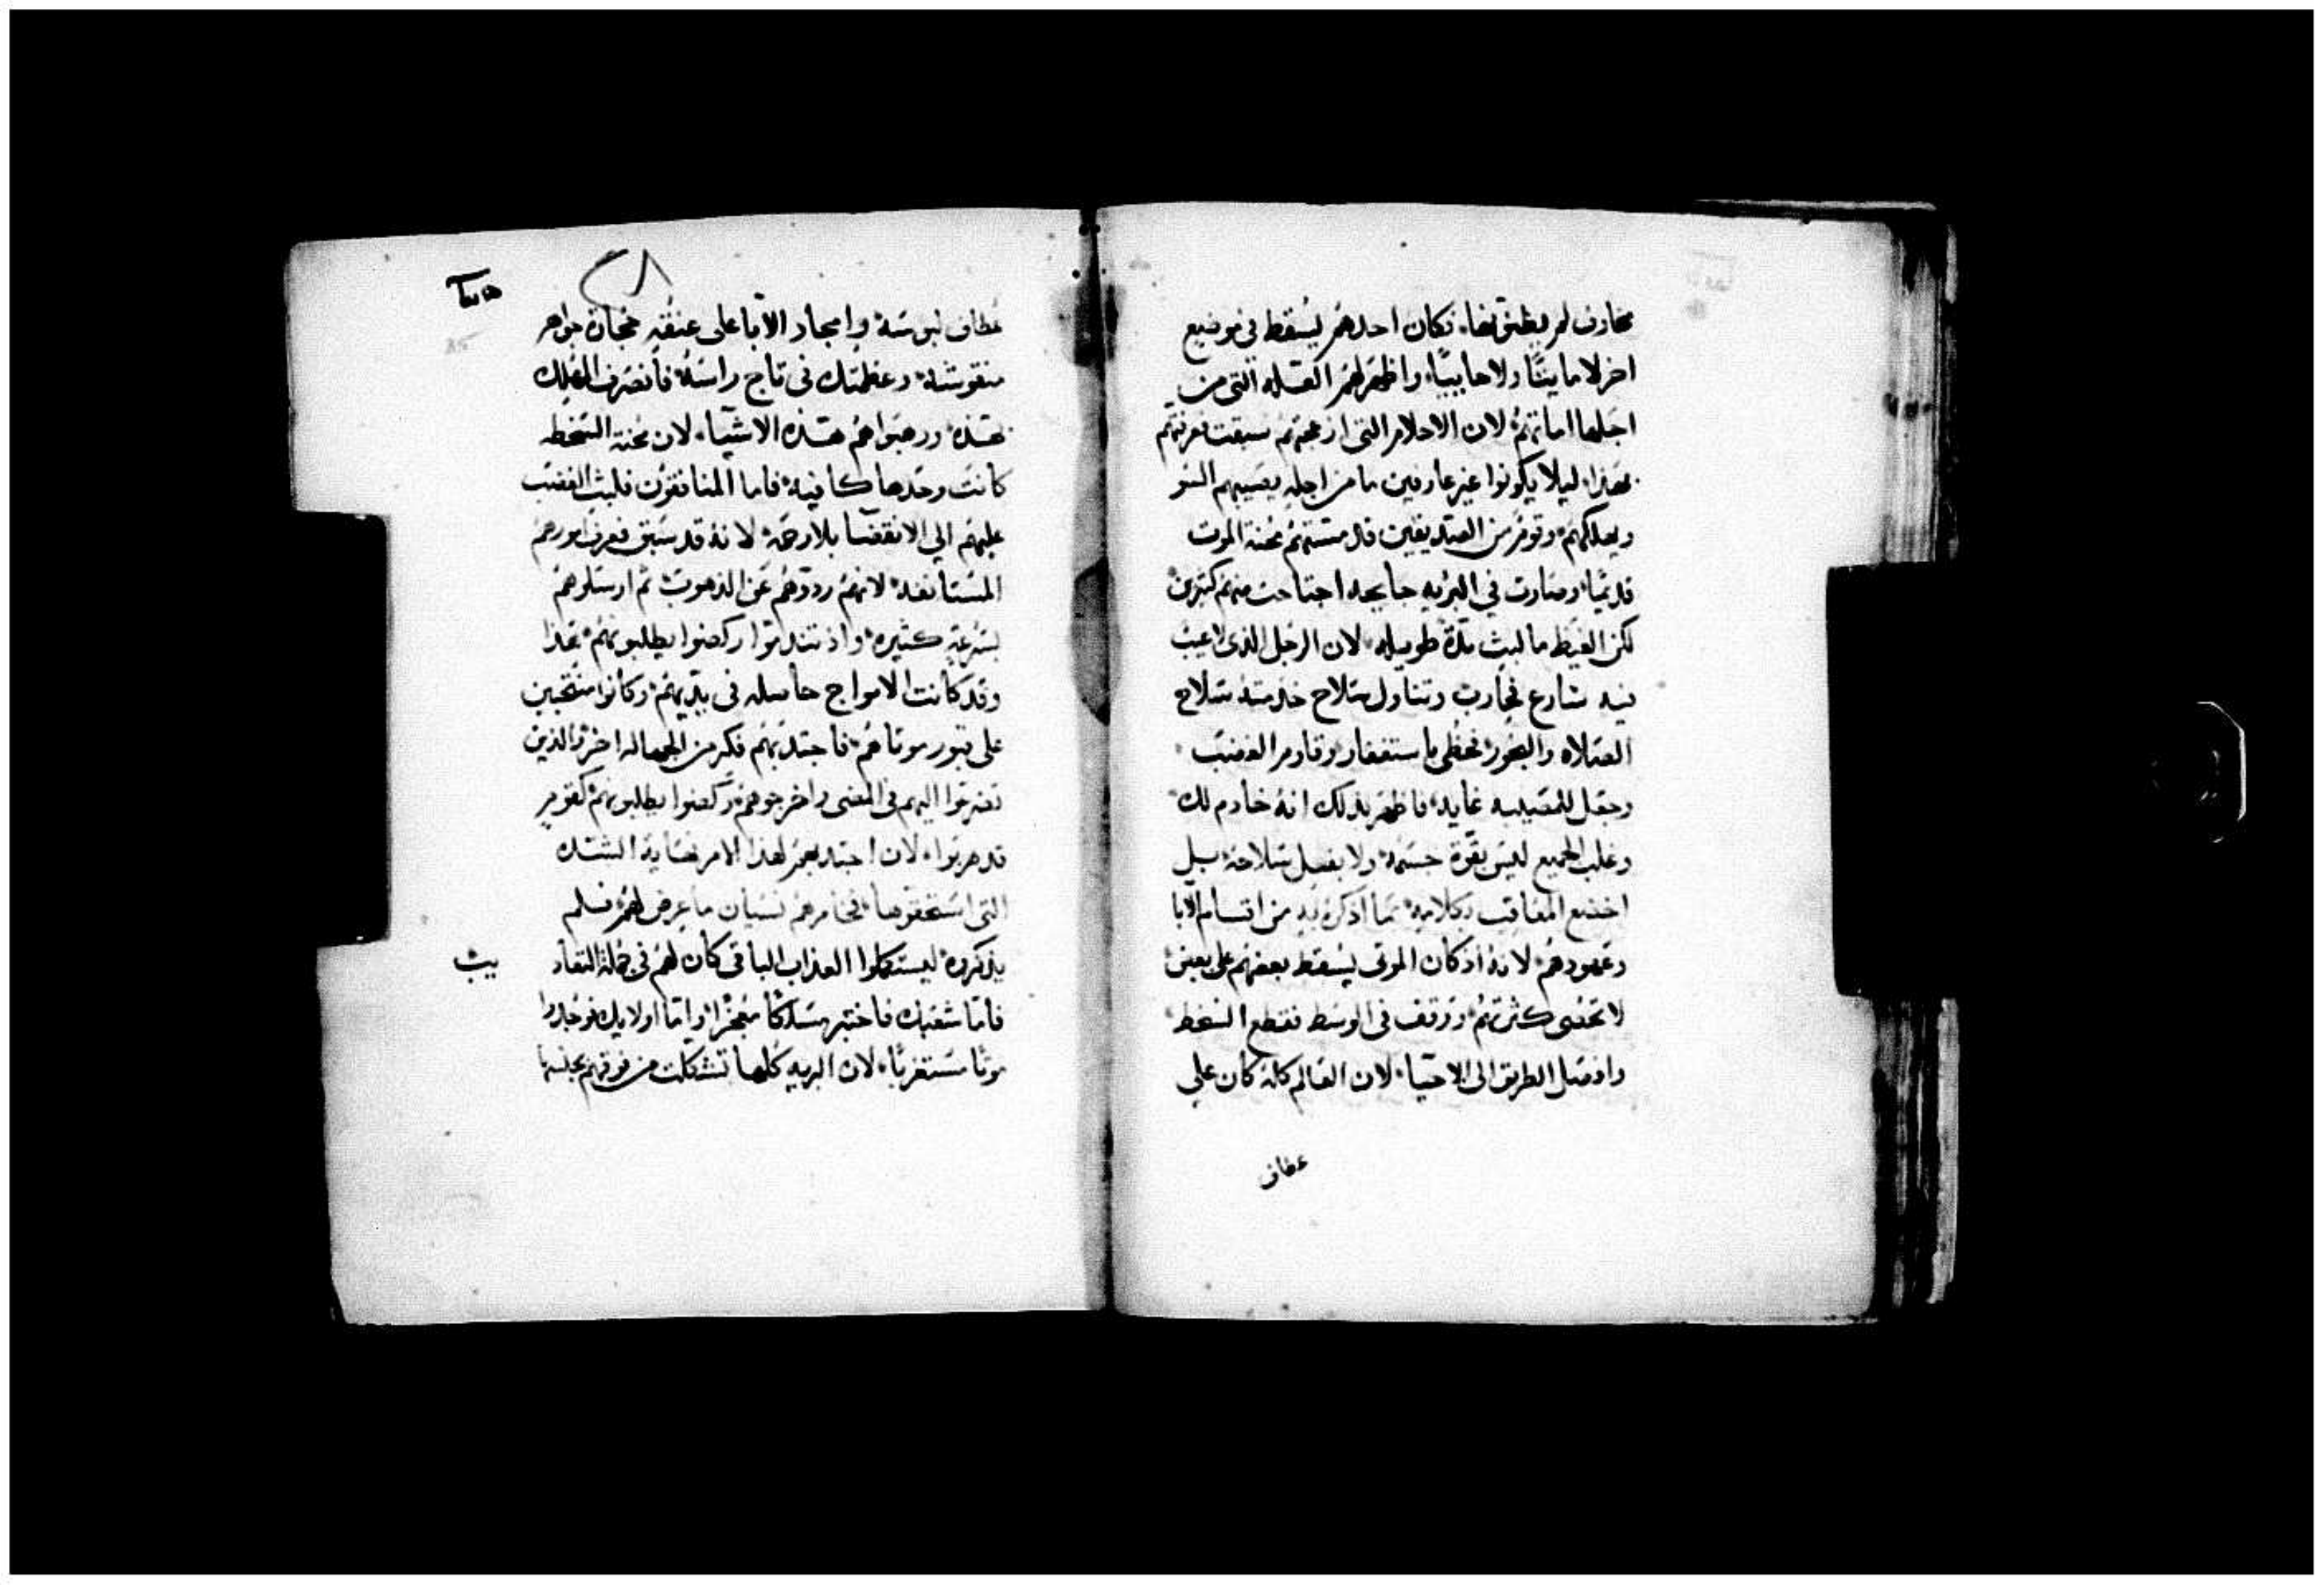 مخاوف لم يظن بها، فكان احدهم يسقط في موضع
اخر لا مايتًا ولا حاييًا، واظهر لهم العله التي من
اجلها اماتهم، لان الاحلام التي ازعجتهم سبقت فعرفتهم
بهذا، ليلا يكونوا غير عارفين ما من اجله يصيبهم السو
ويهلكهم، وقوم من الصديقين قد مستهم محنة الموت
قديمًا، وصارت في البريه جايحه اجتاحت منهم كثيرين
لكن الغيظ ما لبث مدة طويله، لان الرجل الذي لا عيب
فيه سارع فحارب وتناول سلاح خدمته سلاح
الصلاه والبخور، فحظي باستغفار وقاوم الغضب
وجعل للمصيبه غايه، فاظهر بذلك انه خادم لك
وغلب الجميع ليس بقوة جسمه ولا بفعل سلاحه بل
اخضع المعاقب بكلامه مما اذكر به من اقسام الابا
وعهودهم، لانه اذ كان الموتى يسقط بعضهم على بعض
لا تحصى كثرتهم، ووقف في الوسط فقطع السخط
وافصل الطريق الى الاحيا، لان العالم كله كان علي
عطاف
عطاف لبوسه، وامجاد الابا على عنقه حجارة جواهر
منقوشه، وعظمتك في تاج راسه، فانصرف المهلك
بهذه، ورهبوا هم هذه الاشيا، لان محنة السخطه
كانت وحدها كافيه، فاما المنافقون فلبث الغضب
عليهم الى الانقضا بلا رحمه، لانه قد سبق فعرف امورهم
المستانفه، لانهم ردوهم عن الذهوب، ثم ارسلوهم
بسرعه كثيره، واذ تندموا ركضوا يطلبونهم، هذا
وقد كانت الامواج حاصله في يديهم، وكانوا منتحبين
على قبور موتاهم، فاجتذبهم فكر من الجهاله اخر، والذين
تضرعوا اليهم في المضي واخرجوهم، ركضوا يطلبونهم كقوم
قد هربوا، لان اجتذبهم لهذا الامر نهاية الشده
التي استحقوها، فخامرهم نسيان ما عرض لهم، فلم
يذكروه، ليستكملوا العذاب الباقي كان لهم في جملة
فاما شعبك فاختبر مسلكًا معجزًا، واما اولايك فوجدوا
موتًا مستغربًا، لان البريه كلها تشكلت من فوقهم بجنسها